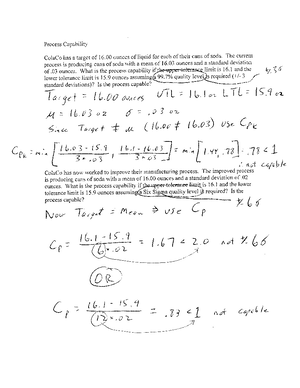 Process Capability
ColaCo has a target of 16.00 ounces of liquid for each of their cans of soda. The current
process is producing cans of soda with a mean of 16.03 ounces and a standard deviation
of .03 ounces. What is the process capability if the upper tolerance limit is 16.1 and the
lower tolerance limit is 15.9 ounces assuming a 99.7% quality level is required (+/- 3
standard deviations)? Is the process capable?
Target = 16.00 ounces UTL = 16.1 oz LTL = 15.9 oz
μ = 16.03 oz σ = .03 oz
Since Target ≠ μ (16.00 ≠ 16.03) use Cpk
Cpk = min [ 16.03 - 15.9 / 3 * .03 , 16.1 - 16.03 / 3 * .03 ] = min [1.44, .78] = .78 < 1
not capable
ColaCo has now worked to improve their manufacturing process. The improved process
is producing cans of soda with a mean of 16.00 ounces and a standard deviation of .02
ounces. What is the process capability if the upper tolerance limit is 16.1 and the lower
tolerance limit is 15.9 ounces assuming a Six Sigma quality level is required? Is the
process capable?
Now Target = Mean ⇒ use Cp
Cp = 16.1 - 15.9 / 6 * .02 = 1.67 < 2.0 not
OR
Cp = 16.1 - 15.9 / 12 * .02 = .83 < 1 not capable